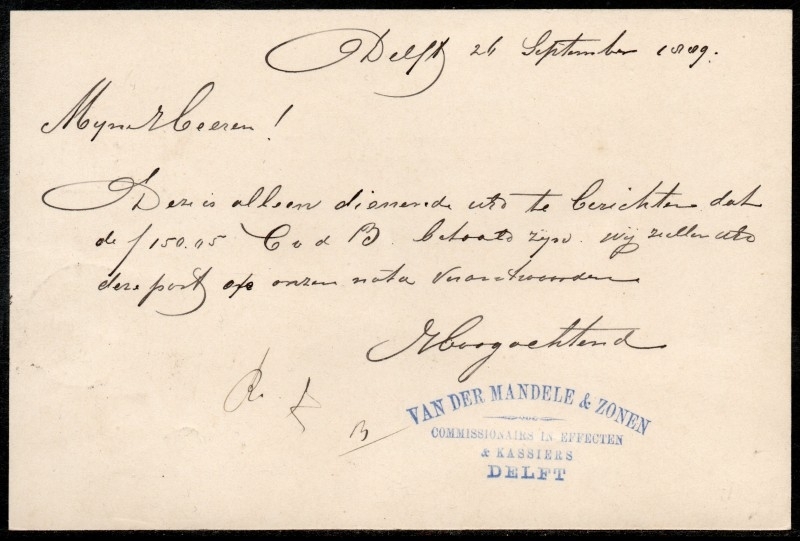 Delft 26 September 1889.
Mijne Heeren!
Deze is alleen dienende UEd te berichten dat
de f 150.05 C v d B. betaald zijn. wij zullen UEd
deze post op onzen nota verantwoorden
Hoogachtend
VAN DER MANDELE & ZONEN
COMMISSIONAIRS IN EFFECTEN
& KASSIERS
DELFT